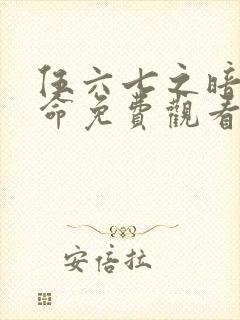 伍六七之暗
命免費觀看
安倍拉